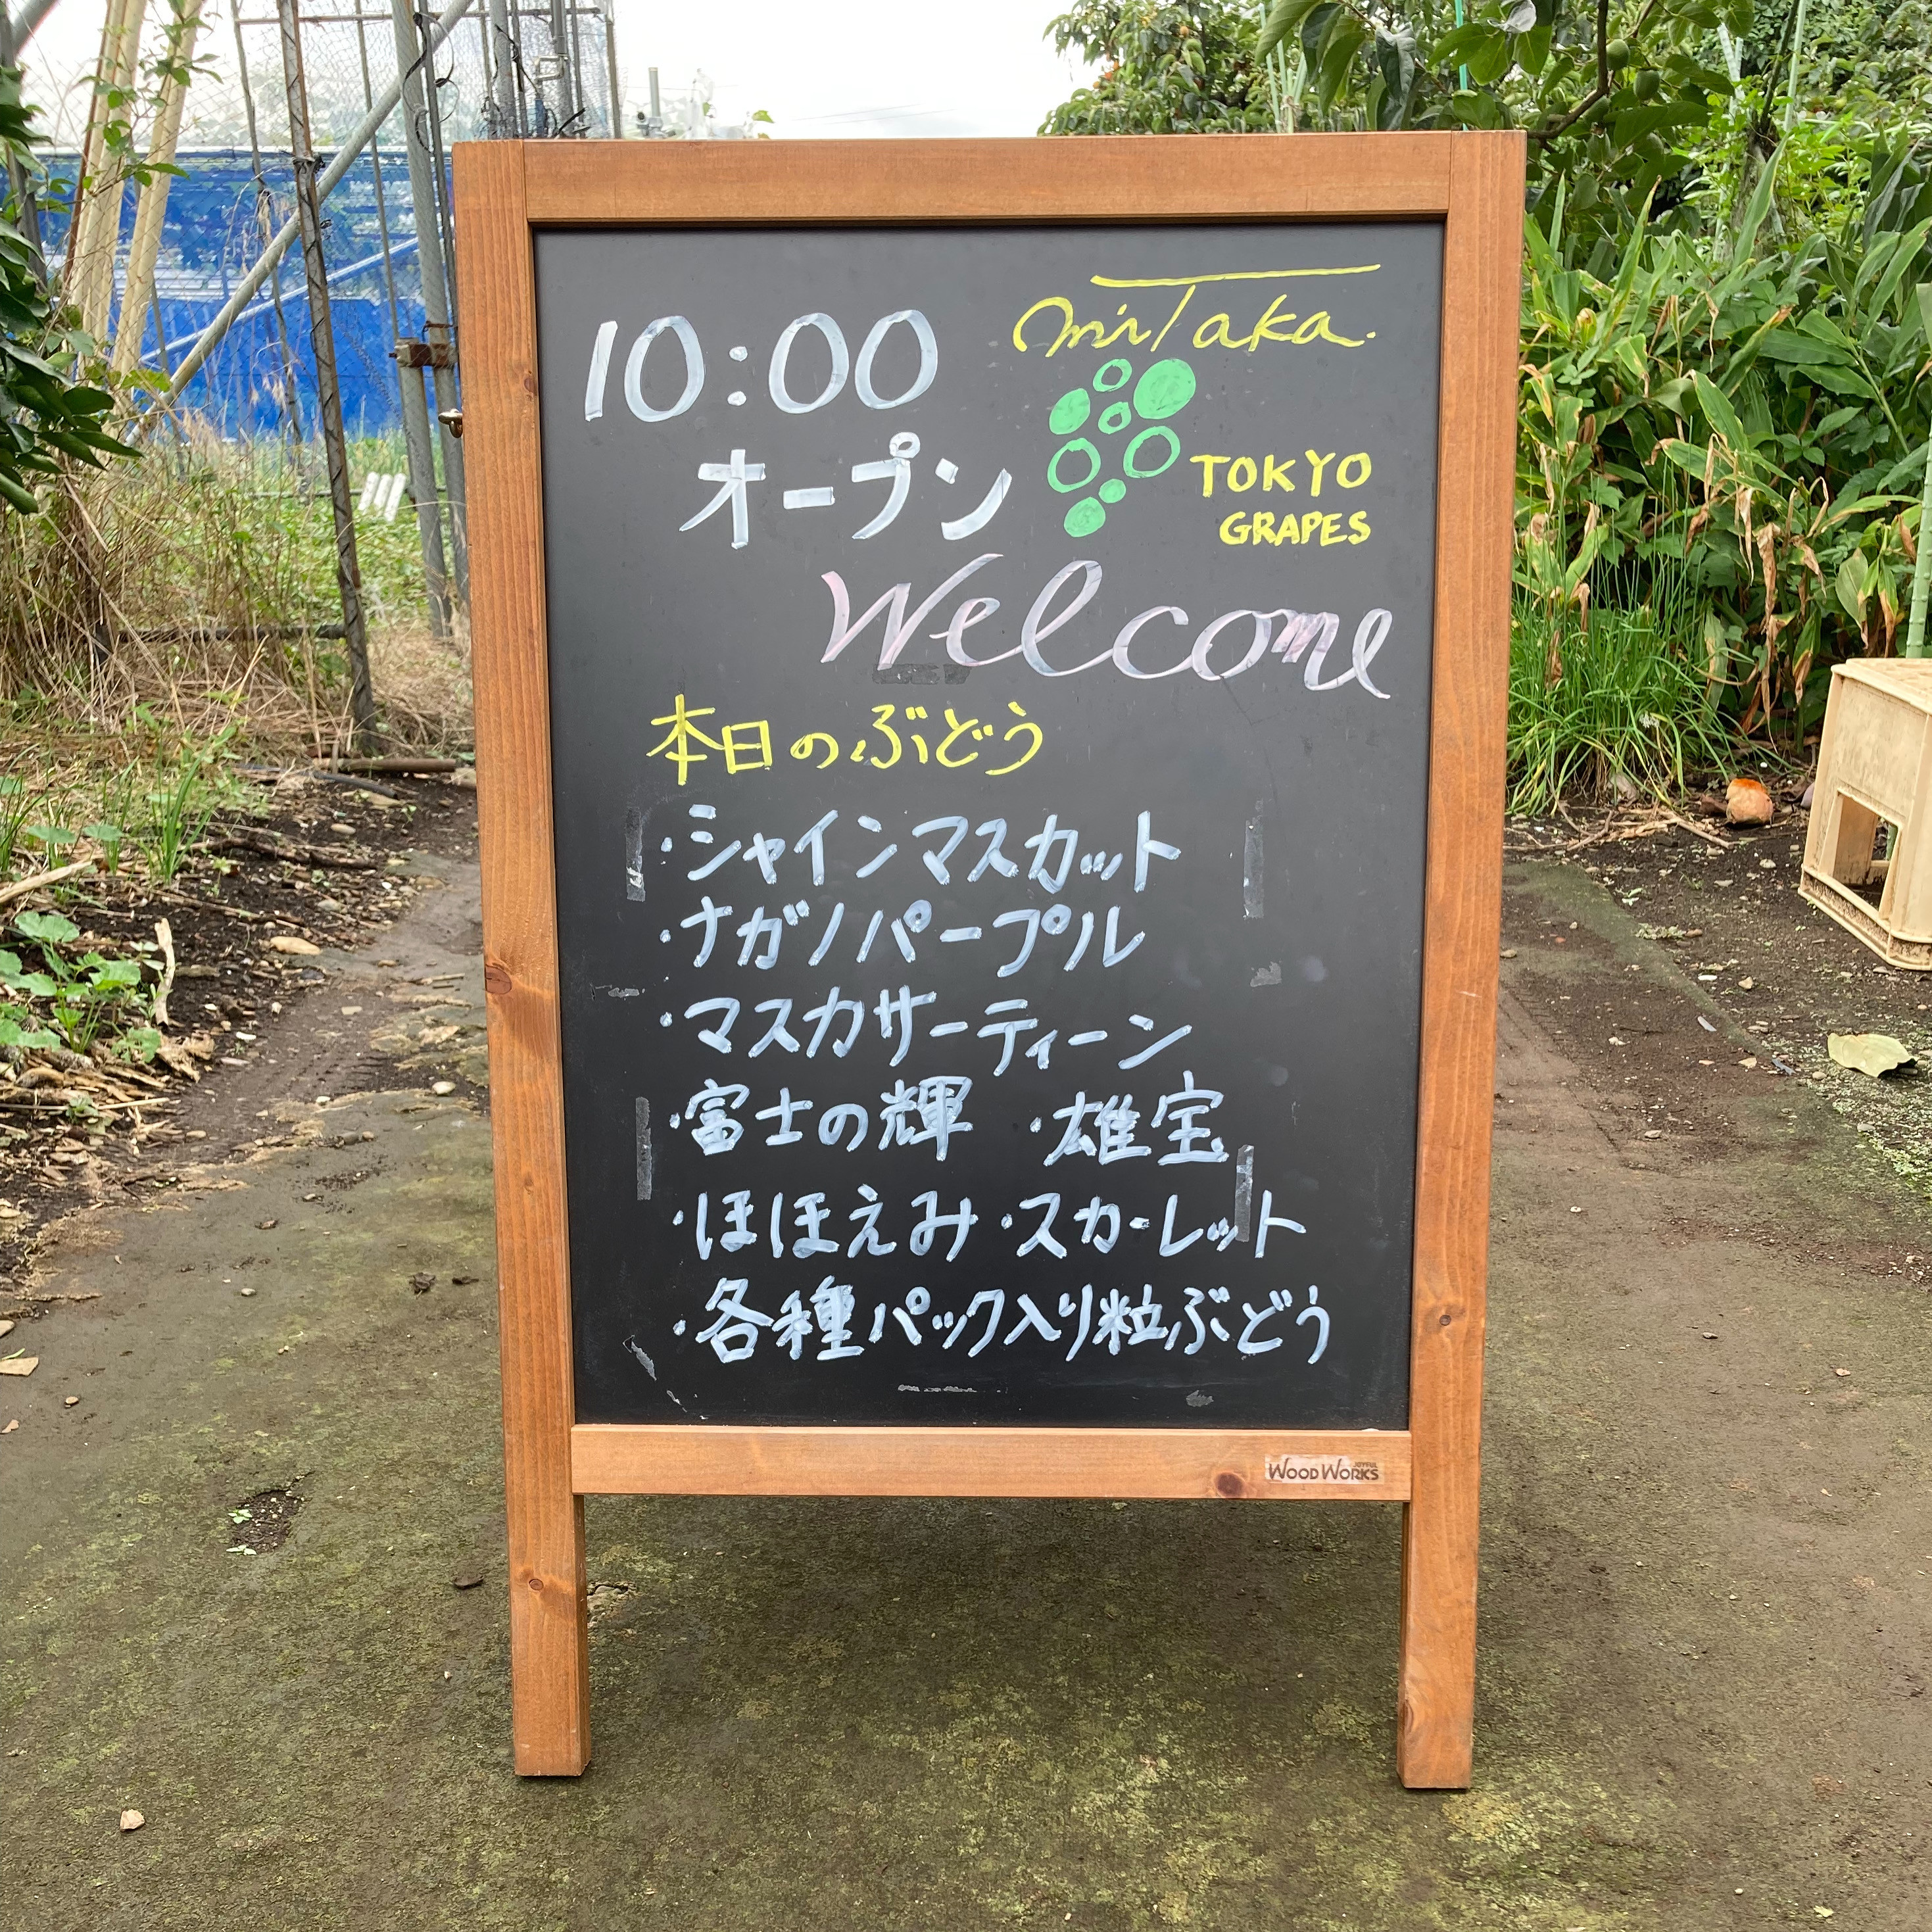 10:00
オープン
miTaka.
TOKYO
GRAPES
Welcome
本日のぶどう
・シャインマスカット
・ナガノパープル
・マスカサーティーン
・富士の輝 ・雄宝
・ほほえみ ・スカーレット
・各種パック入り粒ぶどう
JOYFUL
WOODWORKS